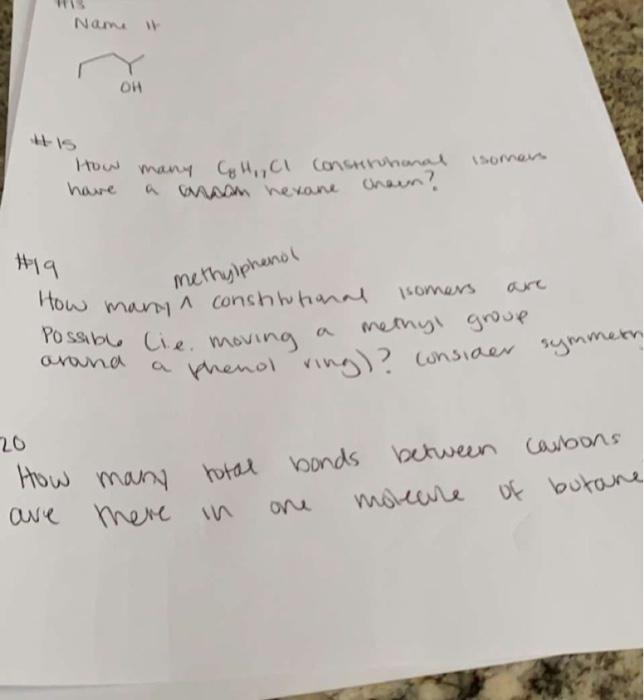 #13
Name it
OH
#15
How many C8H17Cl constitutional isomers
have a hexane chain?
#19
methylphenol
How many ^ constitutional isomers are
Possible (i.e. moving a methyl group
around a phenol ring)? consider symmetry
20
How many total bonds between carbons
are there in one molecule of butane